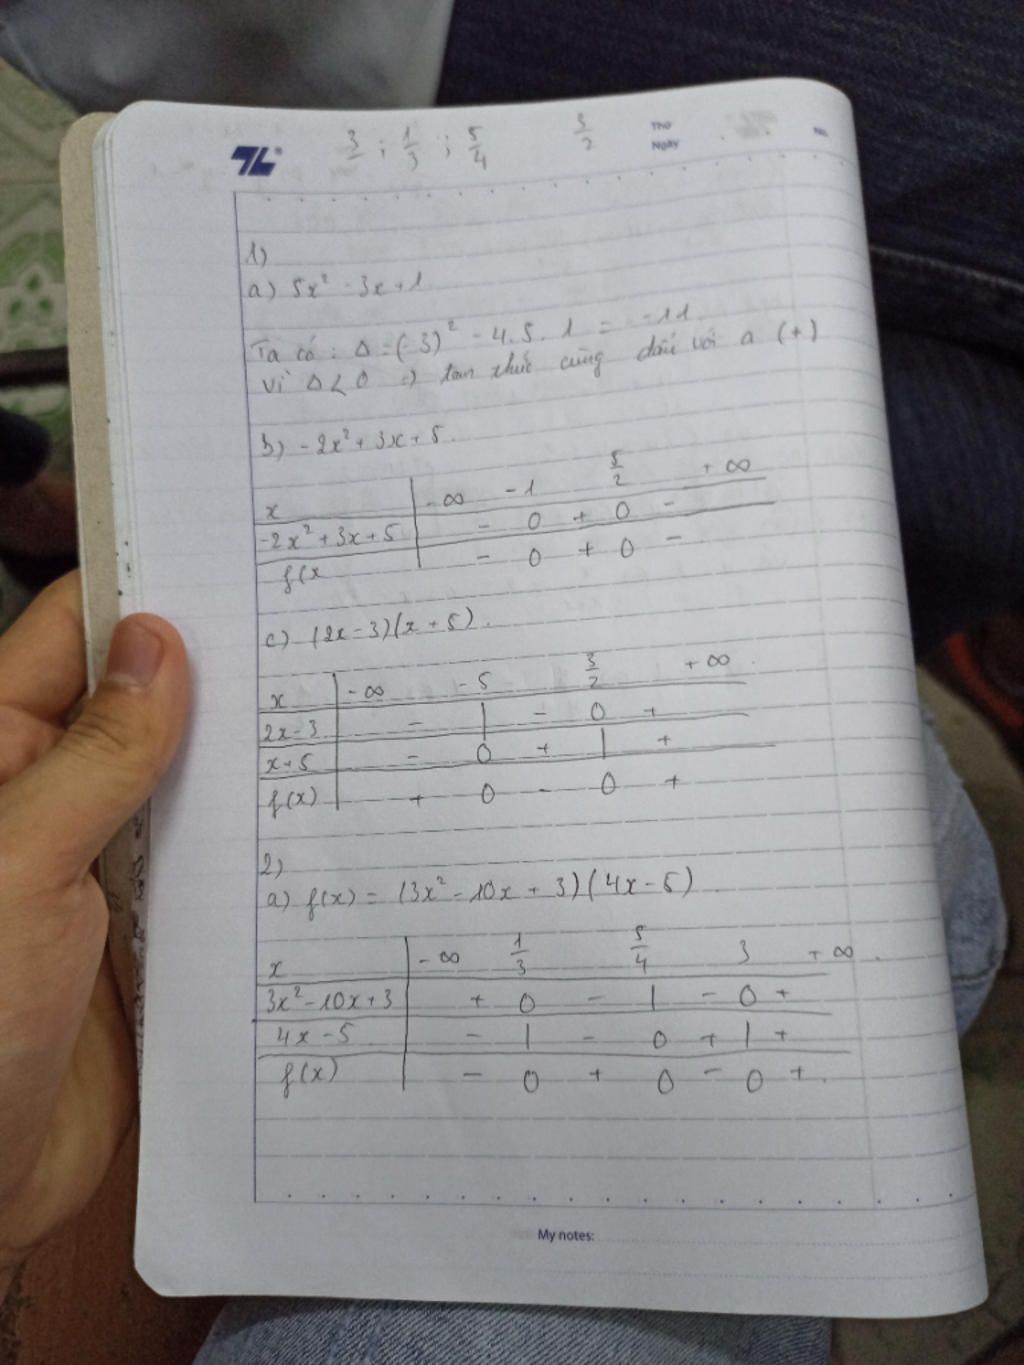 TL
3/ ; 1/3 ; 5/4 3/2
Thứ
Ngày
No.
1)
a) 5x² - 3x + 1
Ta có : Δ = (-3)² - 4.5.1 = -11.
Vì Δ < 0 => tam thức cùng dấu với a (+)
b) -2x² + 3x + 5.
x -∞ -1 5/2 +∞
-2x² + 3x + 5 - 0 + 0 -
f(x - 0 + 0 -
c) (2x - 3)(x + 5).
x -∞ -5 3/2 +∞
2x - 3 - | - 0 +
x + 5 - 0 + | +
f(x) + 0 - 0 +
2)
a) f(x) = (3x² - 10x + 3)(4x - 5)
x -∞ 1/3 5/4 3 +∞
3x² - 10x + 3 + 0 - | - 0 +
4x - 5 - | - 0 + | +
f(x) - 0 + 0 - 0 + .
My notes: